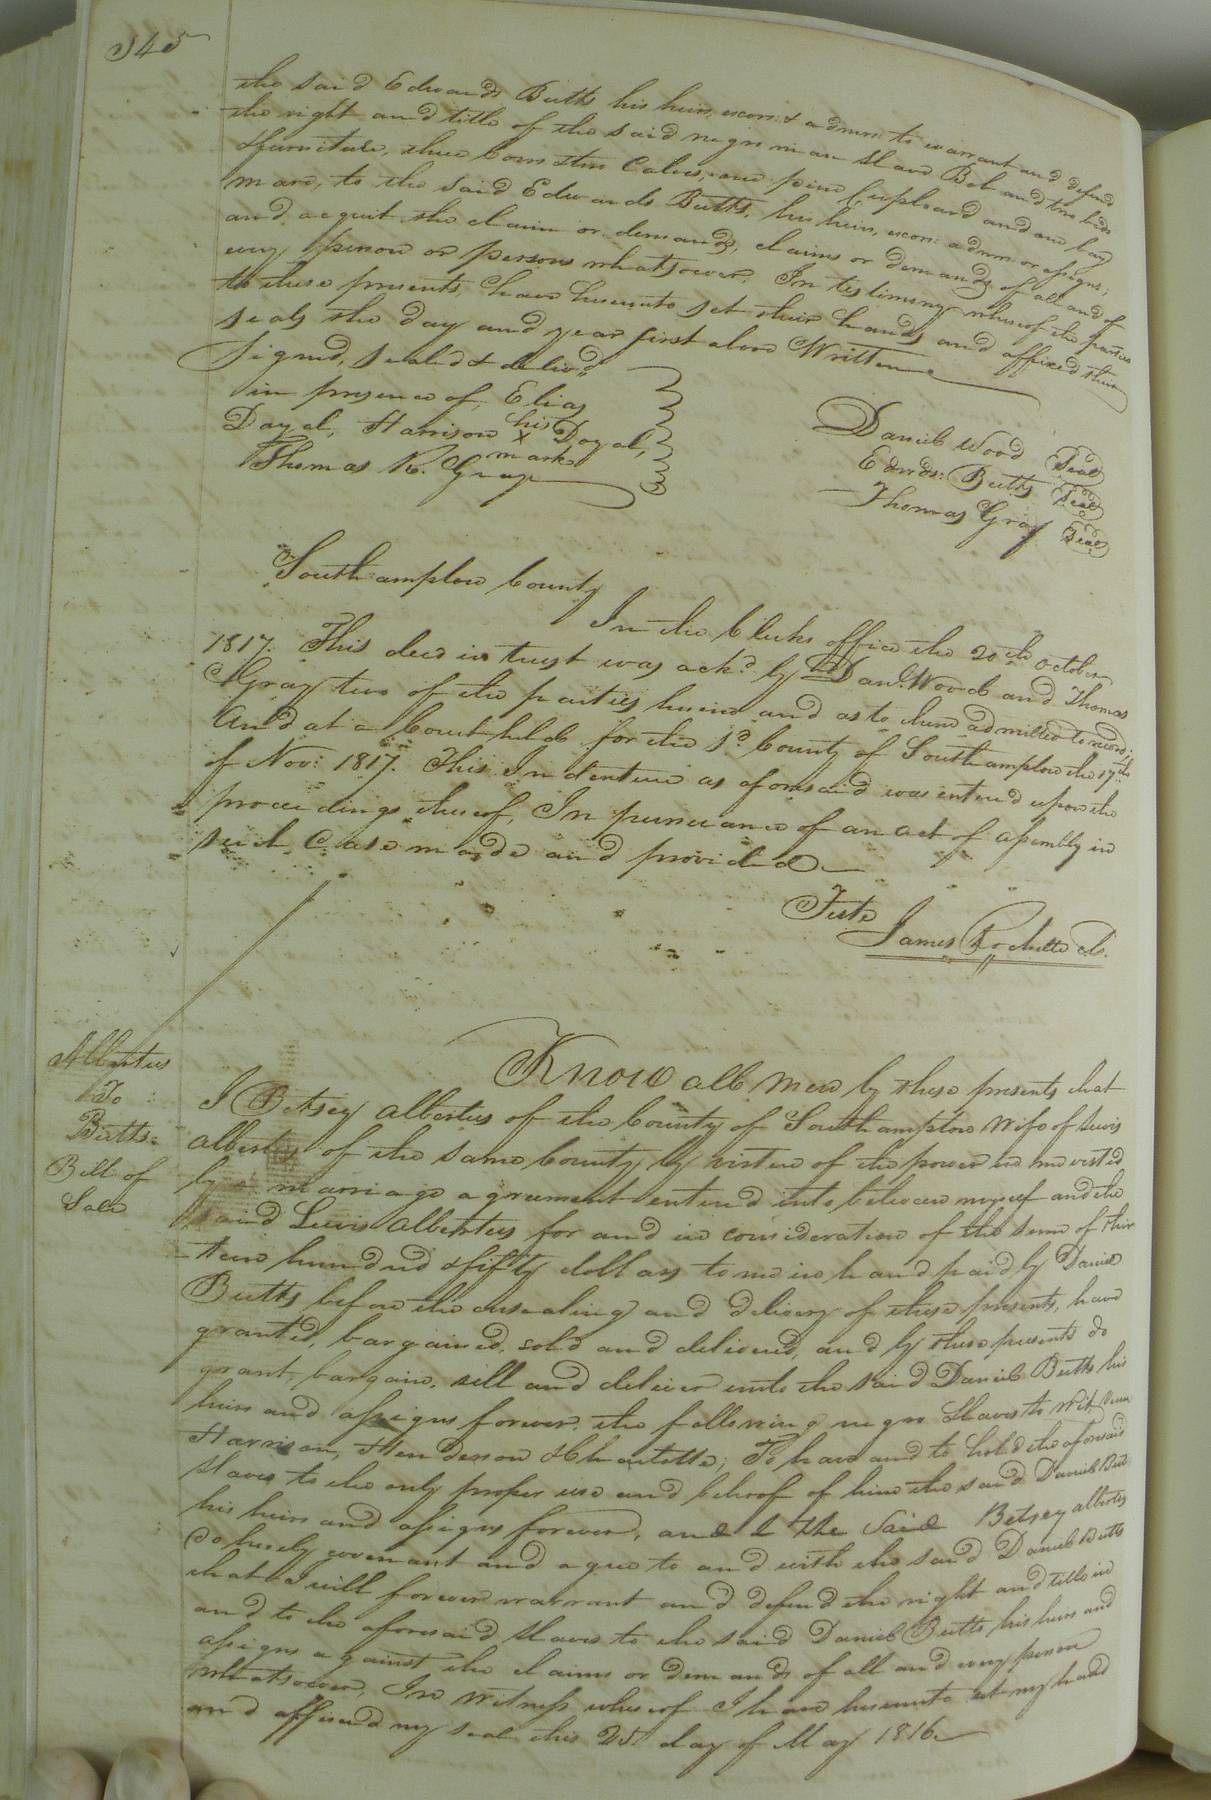 345
the said Edwards Butts his heirs, exors: & admrs: to warrant and defend
the right and title of the said negro man slave Bob and two beds
& furniture, three Cows & two Calves, one pine Cupboard and one bay
mare, to the said Edwards Butts, his heirs, exors: admrs: or assigns;
and acquit the claim or demands, claims or demands of all and of
every person or persons whatsoever. In testimony whereof the parties
to these presents have hereunto set their hands and affixed their
seals the day and year first above Written
Signed, sealed & deliv'd
in presence of, Elias
Doyel, Harrison his X mark Doyal,
Thomas R. Gray
Daniel Wood Seal
Edwds: Butts Seal
Thomas Gray Seal
Southampton County
In the Clerks office the 20th October
1817. This deed in trust was ackd. by Danl. Wood and Thomas
Gray two of the parties herein and as to them admitted to record:
And at a Court held for the sd. County of Southampton the 17th
of Nov: 1817. This Indenture as aforesaid was entered upon the
proceedings thereof, In pursuance of an act of assembly in
such Case made and provided
Teste
James Rochelle Cl.
Albertus
To
Butts:
Bill of
Sale
Know all Men by these presents that
I Betsey Albertus of the County of Southampton Wife of Lewis
Albertus of the same County by virtue of the power in me vested
by a marriage agreement entered into between myself and the
said Lewis Albertus for and in consideration of the sum of thir
teen hundred & fifty dollars to me in hand paid by Daniel
Butts before the ensealing and delivery of these presents, have
granted, bargained, sold and delivered, and by these presents do
grant, bargain, sell and deliver unto the said Daniel Butts his
heirs and assigns forever, the following negro Slaves to Wit,
Harrison, Henderson & Charlotte; To have and to hold the aforesaid
slaves to the only proper use and behoof of him the said Daniel Butts
his heirs and assigns forever, and I the said Betsey Albertus
do hereby covenant and agree to and with the said Daniel Butts
that I will forever warrant and defend the right and title in
and to the aforesaid slaves to the said Daniel Butts his heirs and
assigns against the claims or demands of all and every person
whatsoever, In Witness whereof I have hereunto set my hand
and affixed my seal this 25 day of May 1816